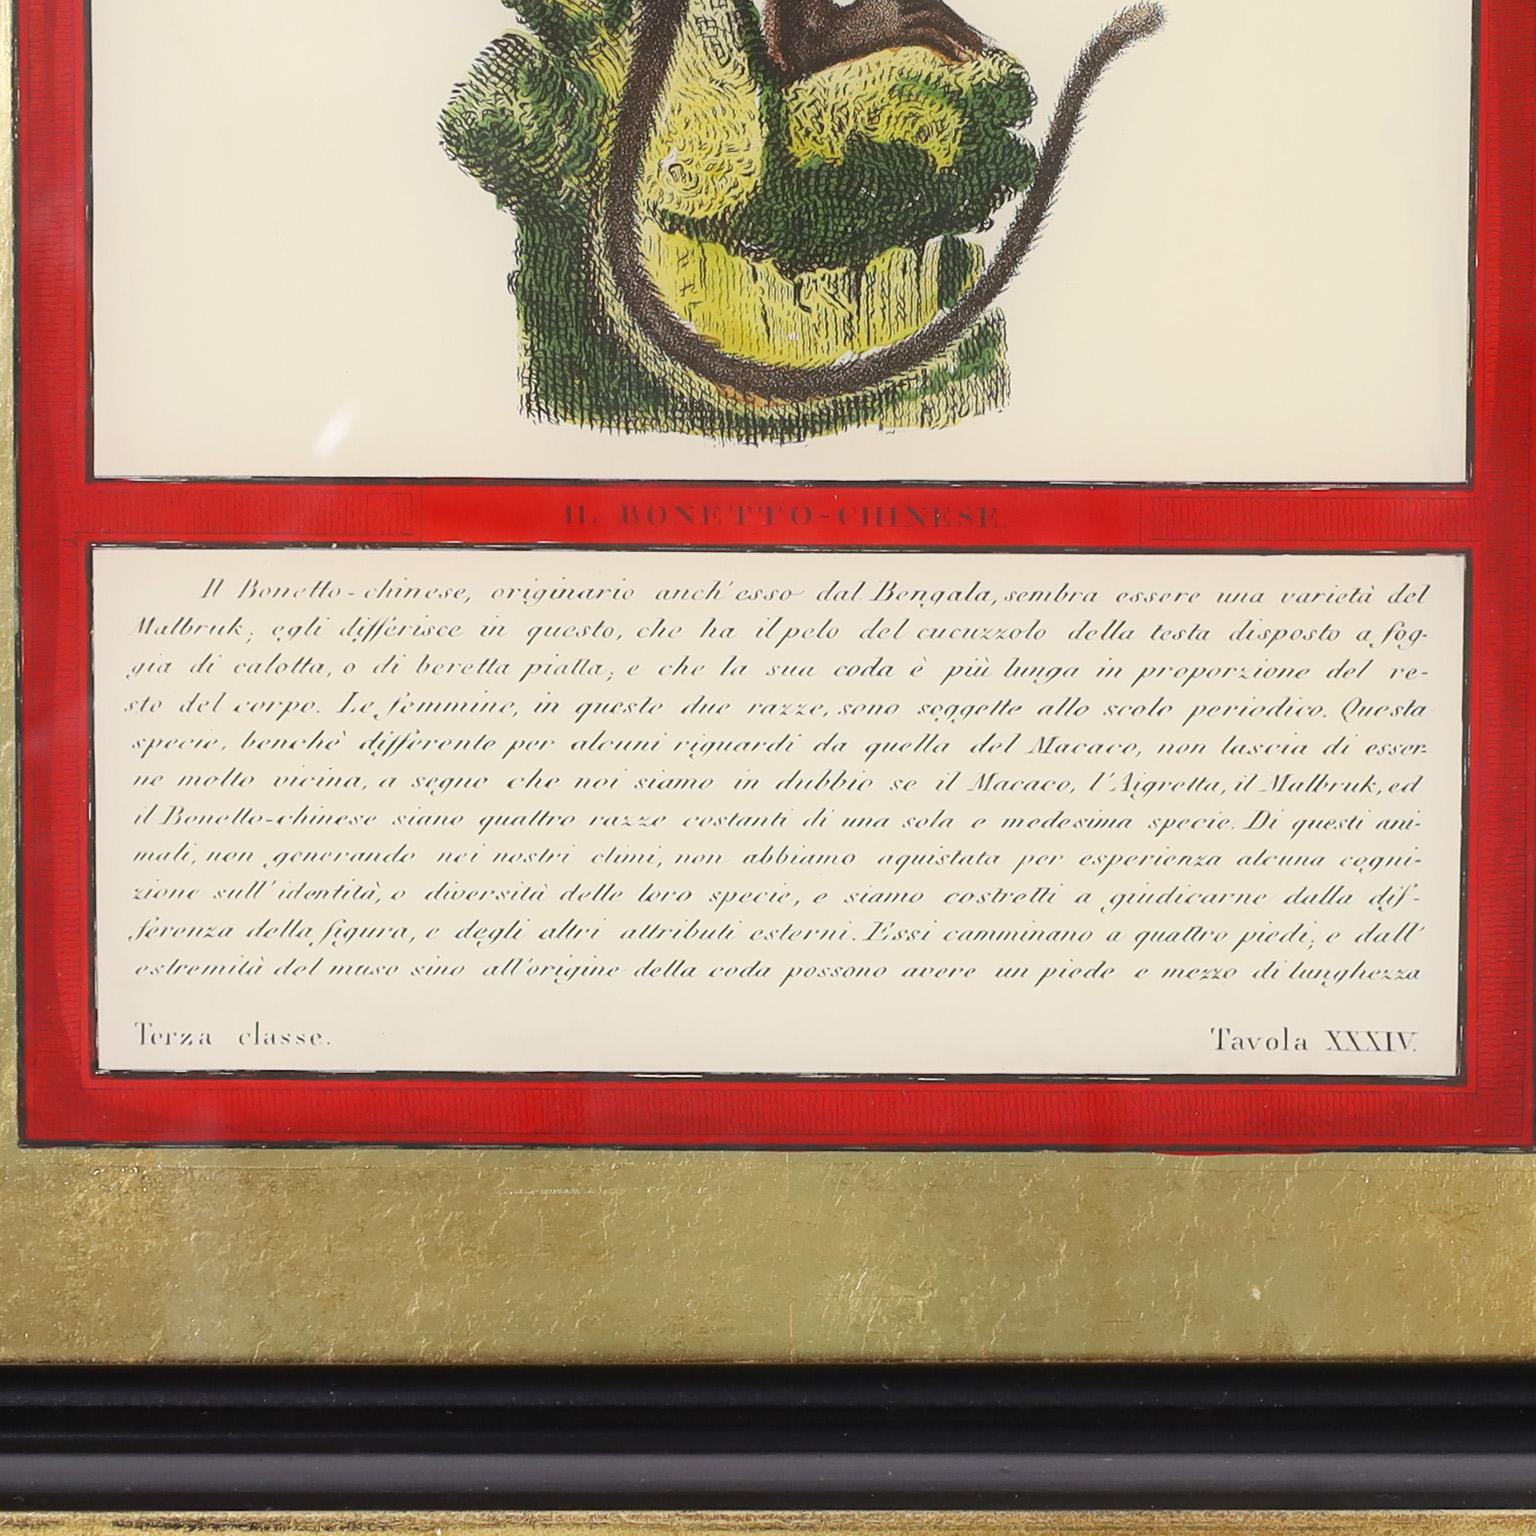 IL BONETTO-CHINESE.
Il Bonetto-chinese, originario anch'esso dal Bengala, sembra essere una varietà del
Malbruk; egli differisce in questo, che ha il pelo del cucuzzolo della testa disposto a fog-
gia di calotta, o di beretta piatta; e che la sua coda è più lunga in proporzione del re-
sto del corpo. Le femmine, in queste due razze, sono soggette allo scolo periodico. Questa
specie, benchè differente per alcuni riguardi da quella del Macaco, non lascia di esser-
ne molto vicina, a segno che noi siamo in dubbio se il Macaco, l'Aigretta, il Malbruk, ed
il Bonetto-chinese siano quattro razze costanti di una sola e medesima specie. Di questi ani-
mali, non generando nei nostri climi, non abbiamo aquistata per esperienza alcuna cogni-
zione sull'identità, o diversità delle loro specie, e siamo costretti a giudicarne dalla dif-
ferenza della figura, e degli altri attributi esterni. Essi camminano a quattro piedi; e dall'
estremità del muso sino all'origine della coda possono avere un piede e mezzo di lunghezza
Terza classe.
Tavola XXXIV.